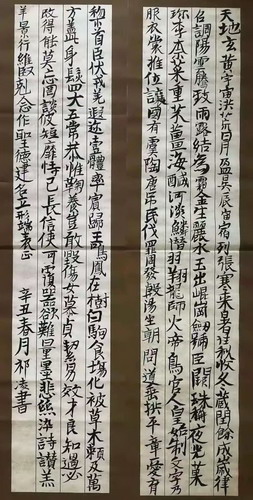 天地玄黃宇宙洪荒日月盈昃辰宿列張寒來暑往秋收冬藏閏餘成歲律
呂調陽雲騰致雨露結為霜金生麗水玉出崐岡劍號巨闕珠稱夜光菓
珍李柰菜重芥薑海鹹河淡鱗潛羽翔龍師火帝鳥官人皇始制文字乃
服衣裳推位讓國有虞陶唐吊民伐罪周發殷湯坐朝問道垂拱平章愛育
黎首臣伏戎羌遐邇壹體率賓歸王鳴鳳在樹白駒食場化被草木賴及萬
方蓋此身髮四大五常恭惟鞠養豈敢毀傷女慕貞絜男效才良知過必
改得能莫忘罔談彼短靡恃己長信使可覆器欲難量墨悲絲染詩讚羔
羊景行維賢剋念作聖德建名立形端表正 辛丑春月祁書